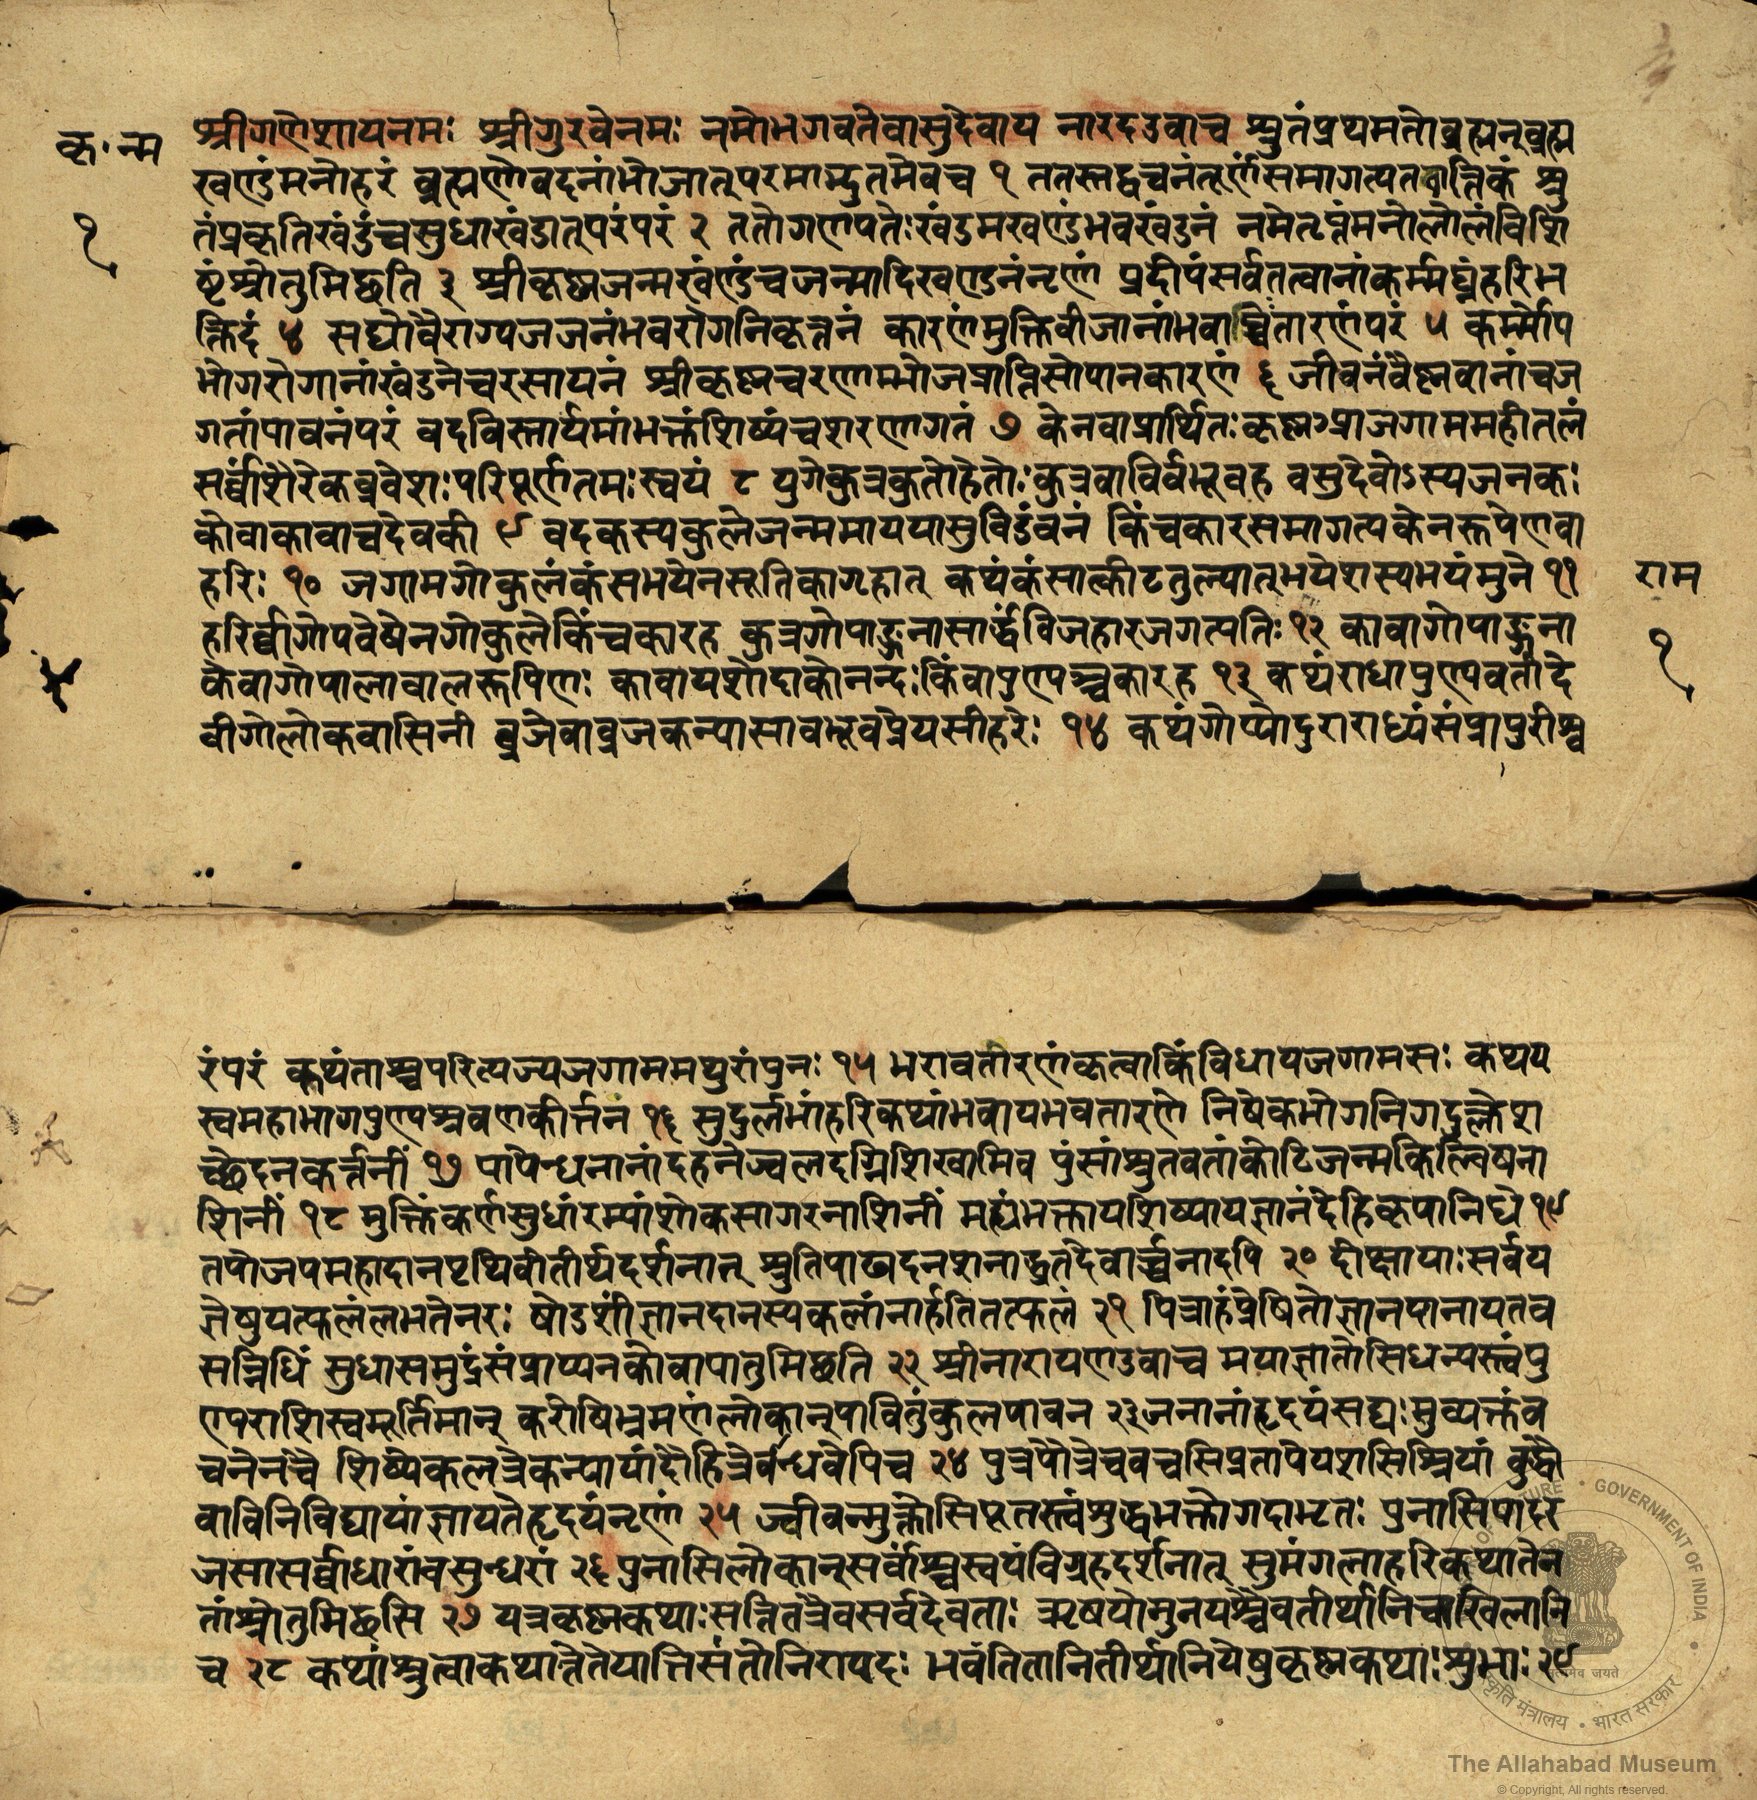 कृ॰न्म
श्रीगणेशायनमः श्रीगुरवेनमः नमोभगवतेवासुदेवाय नारदउवाच श्रुतंप्रथमतोब्रह्मन्ब्रह्म
खण्डंमनोहरं ब्रह्मणोवदनांभोजात्परमाद्भुतमेवच १ ततस्तद्वचनंतूर्णंसमागत्यतवान्तिकं श्रु
१
तंप्रकृतिखंडंच्चसुधाखंडात्परंपरं २ ततोगणपतेःखंडमखण्डंभवखंडनं नमेतृप्तंमनोलोलंविशि
ष्टंश्रोतुमिच्छति ३ श्रीकृष्णजन्मखंण्डंच्चजन्मादिखण्डनंनृणां प्रदीपंसर्वतत्वानांकर्म्मघ्नंहरिभ
क्तिदं ४ सद्योवैराग्यजजनंभवरोगनिकृन्तनं कारणंमुक्तिवीजानांभवाब्धितारणंपरं ५ कर्म्मोप
भोगरोगानांखंडनेच्चरसायनं श्रीकृष्णच्चरणाम्भोजप्राप्तिसोपानकारणं ६ जीवनंवैष्णवानांचज
गतांपावनंपरं वदविस्तार्यमांभक्तंशिष्यंच्चशरणागतं ७ केनवाप्रार्थितःकृष्णःप्राजगाममहीतलं
सर्वांशैरेकव्रवेशःपरिपूर्णतमःस्वयं ८ युगेकुत्रकुतोहेतोःकुत्रवाविर्वभूवह वसुदेवोऽस्यजनकः
कोवाकावाच्चदेवकी ९ वदकस्यकुलेजन्ममाययासुविडंवनं किंचकारसमागत्यकेनरूपेणवा
हरिः १० जगामगोकुलंकंसभयेनसूतिकागृहात् कथंकंसात्कीटतुल्यात्भयेशस्यभयंमुने ११
राम
हरिर्व्वागोपवेषेनगोकुलेकिंच्चकारह कुत्रगोपाङ्गनासार्द्धंविजहारजगत्पतिः १२ कावागोपाङ्गना
१
केवागोपालावालरूपिणः कावायशोदाकोनन्दःकिंवापुण्यञ्चकारह १३ कथंराधापुण्यवतीदे
वीगोलोकवासिनी व्रजेवाव्रजकन्यासावभूवप्रेयसीहरेः १४ कथंगोप्योदुराराध्यंसंप्रापुरीश्व
रंपरं कथंताश्चपरित्यज्यजगाममथुरांपुनः १५ भरावतीरणंकृत्वाकिंविधायजगामसः कथयय
स्वमहाभागपुण्यश्रवणकीर्त्तनं १६ सुदुर्लभांहरिकथांभवायभवतारणे निषेकभोगनिगदक्लेश
च्छेदनकर्त्तनीं १७ पापेन्धनानांदहनेज्वलदग्निशिखामिव पुंसांश्रुतवतांकोटिजन्मकिल्विषना
शिनीं १८ मुक्तिंकर्णसुधांरम्यांशोकसागरनाशिनीं मह्यंभक्तायशिष्यायज्ञानंदेहिकृपानिधे १९
तपोजपमहादानपृथिवीतीर्थदर्शनात् श्रुतिपाठादनशनाद्व्रतदेवार्च्चनादपि २० दीक्षायाःसर्वय
ज्ञेषुयत्फलंलभतेनरः षोडशींज्ञानदानस्यकलांनार्हतितत्फलं २१ पित्राहंप्रेषितोज्ञानपानायतव
सन्निधिं सुधासमुद्रंसंप्राप्यनकोवापातुमिच्छति २२ श्रीनारायणउवाच मयाज्ञातोसिधन्यस्त्वंपु
ण्यराशिस्वमूर्तिमान् करोषिभ्रमणंलोकान्पावितुंकुलपावन २३ जनानांहृदयंसद्यःसुव्यक्तंव
चनेनच्चै शिष्येकलत्रेकन्यायांदौहित्रेर्वन्धवेपिच २४ पुत्रेपौत्रेचवचसिप्रतापेयशसिश्रियां वुद्धौ
वाविनिविद्यायांज्ञायतेहृदयंनृणां २५ ज्जीवन्मुक्तोसिपूतस्त्वंशुद्धभक्तोगदाभृतः पुनासिपादर
जसासर्व्वाधारांवसुन्धरां २६ पुनासिलोकान्सर्वांश्चस्वयंविग्रहदर्शनात् सुमंगलाहरिकथातेन
तांश्रोतुमिछसि २७ यत्रकृष्णकथाःसन्तितत्रैवसर्वदेवताः ऋषयोमुनयश्चैवतीर्थानिचाखिलानि
च २८ कथांश्रुत्वाकथान्तेतेयान्तिसंतोनिरापदः भवंतितानितीर्थानियेषुकृष्णकथाःशुभाः २९
GOVERNMENT OF INDIA
सत्यमेव जयते
संस्कृति मंत्रालय • भारत सरकार
The Allahabad Museum
© Copyright, All rights reserved.